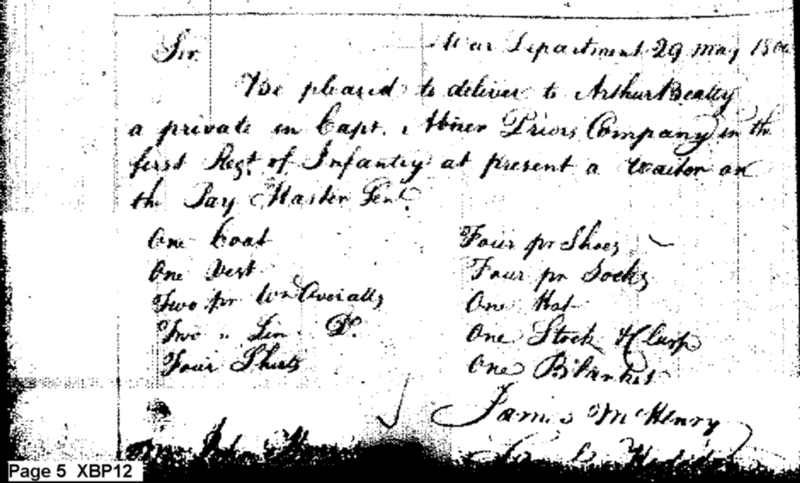 War Department 29 May 180
Sir.
Be pleased to deliver to Arthur Beatty
a private in Capt. Abner Priors Company in the
first Regt. of Infantry at present a waiter on
the Pay Master Genl.
One Coat
One Vest
Two pr Wn Overalls
Two " Lin Do.
Four Shirts
Four pr Shoes
Four pr Socks
One Hat
One Stock & Clasp
One Blanket
James McHenry
Page 5 XBP12